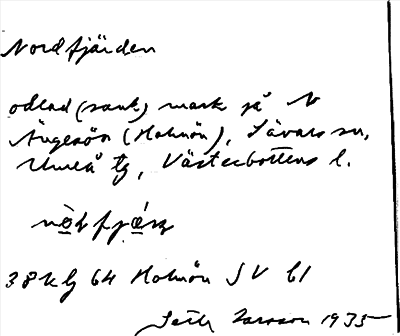 Nordfjärden
odlad (sank) mark på N
Ängesön (Holmön), Sävars sn,
Umeå tg, Västerbottens l.
38 k g 64 Holmön SV bl
Seth Larsson 1935